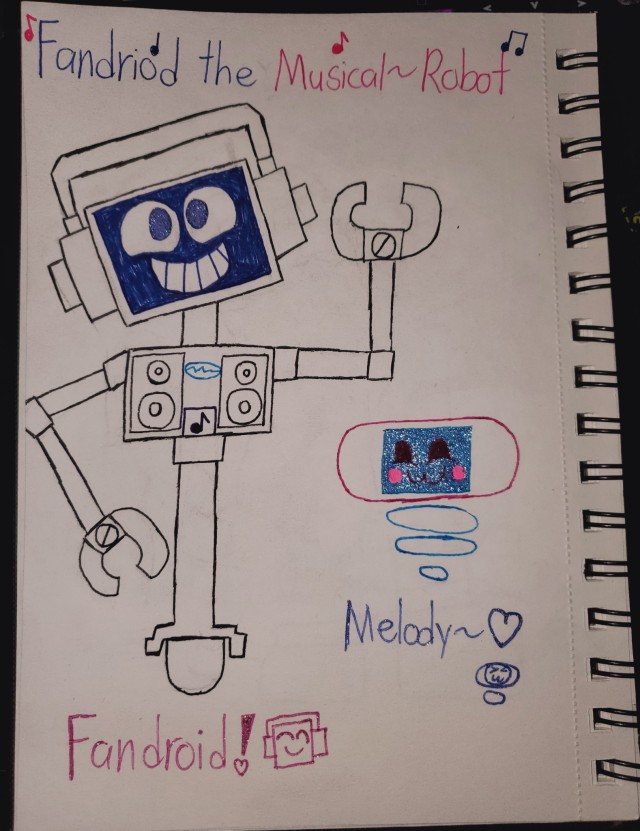 Fandriod the Musical~Robot
Melody~♡
Fandroid!